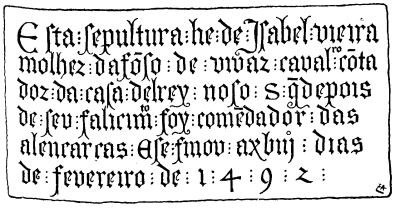 Esta : sepultura : he : de : Isabel : vieira
molhez : dafõso : de : vivaz : caval.ro cõta
doz : da : casa : delrey : noso : S : q̃depois
de : seu : falicim.to foy : comẽdador : das
alencarcas : E se : finou : a xbiij : dias
de : fevereiro : de : 1 : 4 : 9 : 2 :